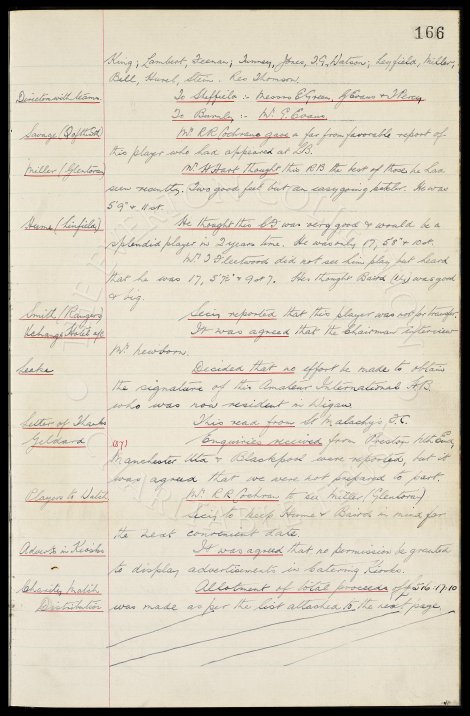 166
King; Lambert, Feenan; Tunney, Jones, T.G. Watson; Leyfield, Miller,
Bell, Hurel, Stein. Res Thomson.
Directors with teams. To Sheffield :- Messrs C Green, G Evans & T Percy
To Barnsley :- Mr E. Evans.
Savage (Q of the Sth) Mr R.R. Cochrane gave a far from favorable report of
this player who had appeared at I.B.
Miller (Glentoran) Mr H Hart Thought this R B the best of those he had
seen recently. Two good feet but an easygoing He was
5' 9" & 11 st.
Hume (Linfield) He thought this C F was very good & would be a
splendid player in 2 years time. He was only 17, 5' 8" & 10 st.
Mr J Fleetwood did not see him play but heard
that he was 17, 5' 7½" & 9 st 7. He thought Baird was good
& big.
Smith (Rangers) Secy reported that this player was not for transfer.
Xchange Hotel a/c It was agreed that the Chairman interview
Mr Newborn.
Leake Decided that no effort be made to obtain
the signature of this Amateur International
who was now resident in Wigan
Letter of Thanks This read from St Malachy's F.C.
Geldard (37) Enquiries received from Preston Nth End,
Manchester Utd & Blackpool were reported, but it
was agreed that we were not prepared to part.
Players to Watch Mr R.R. Cochrane to see Miller (Glentoran)
Secy to keep Hume & Baird in mind for
the next convenient date.
Adverts in Kiosks It was agreed that no permission be granted
to display advertisements in Catering Kiosks.
Charity Match Allotment of total proceeds of £516.17.10
Distribution was made as per the list attached to the next page